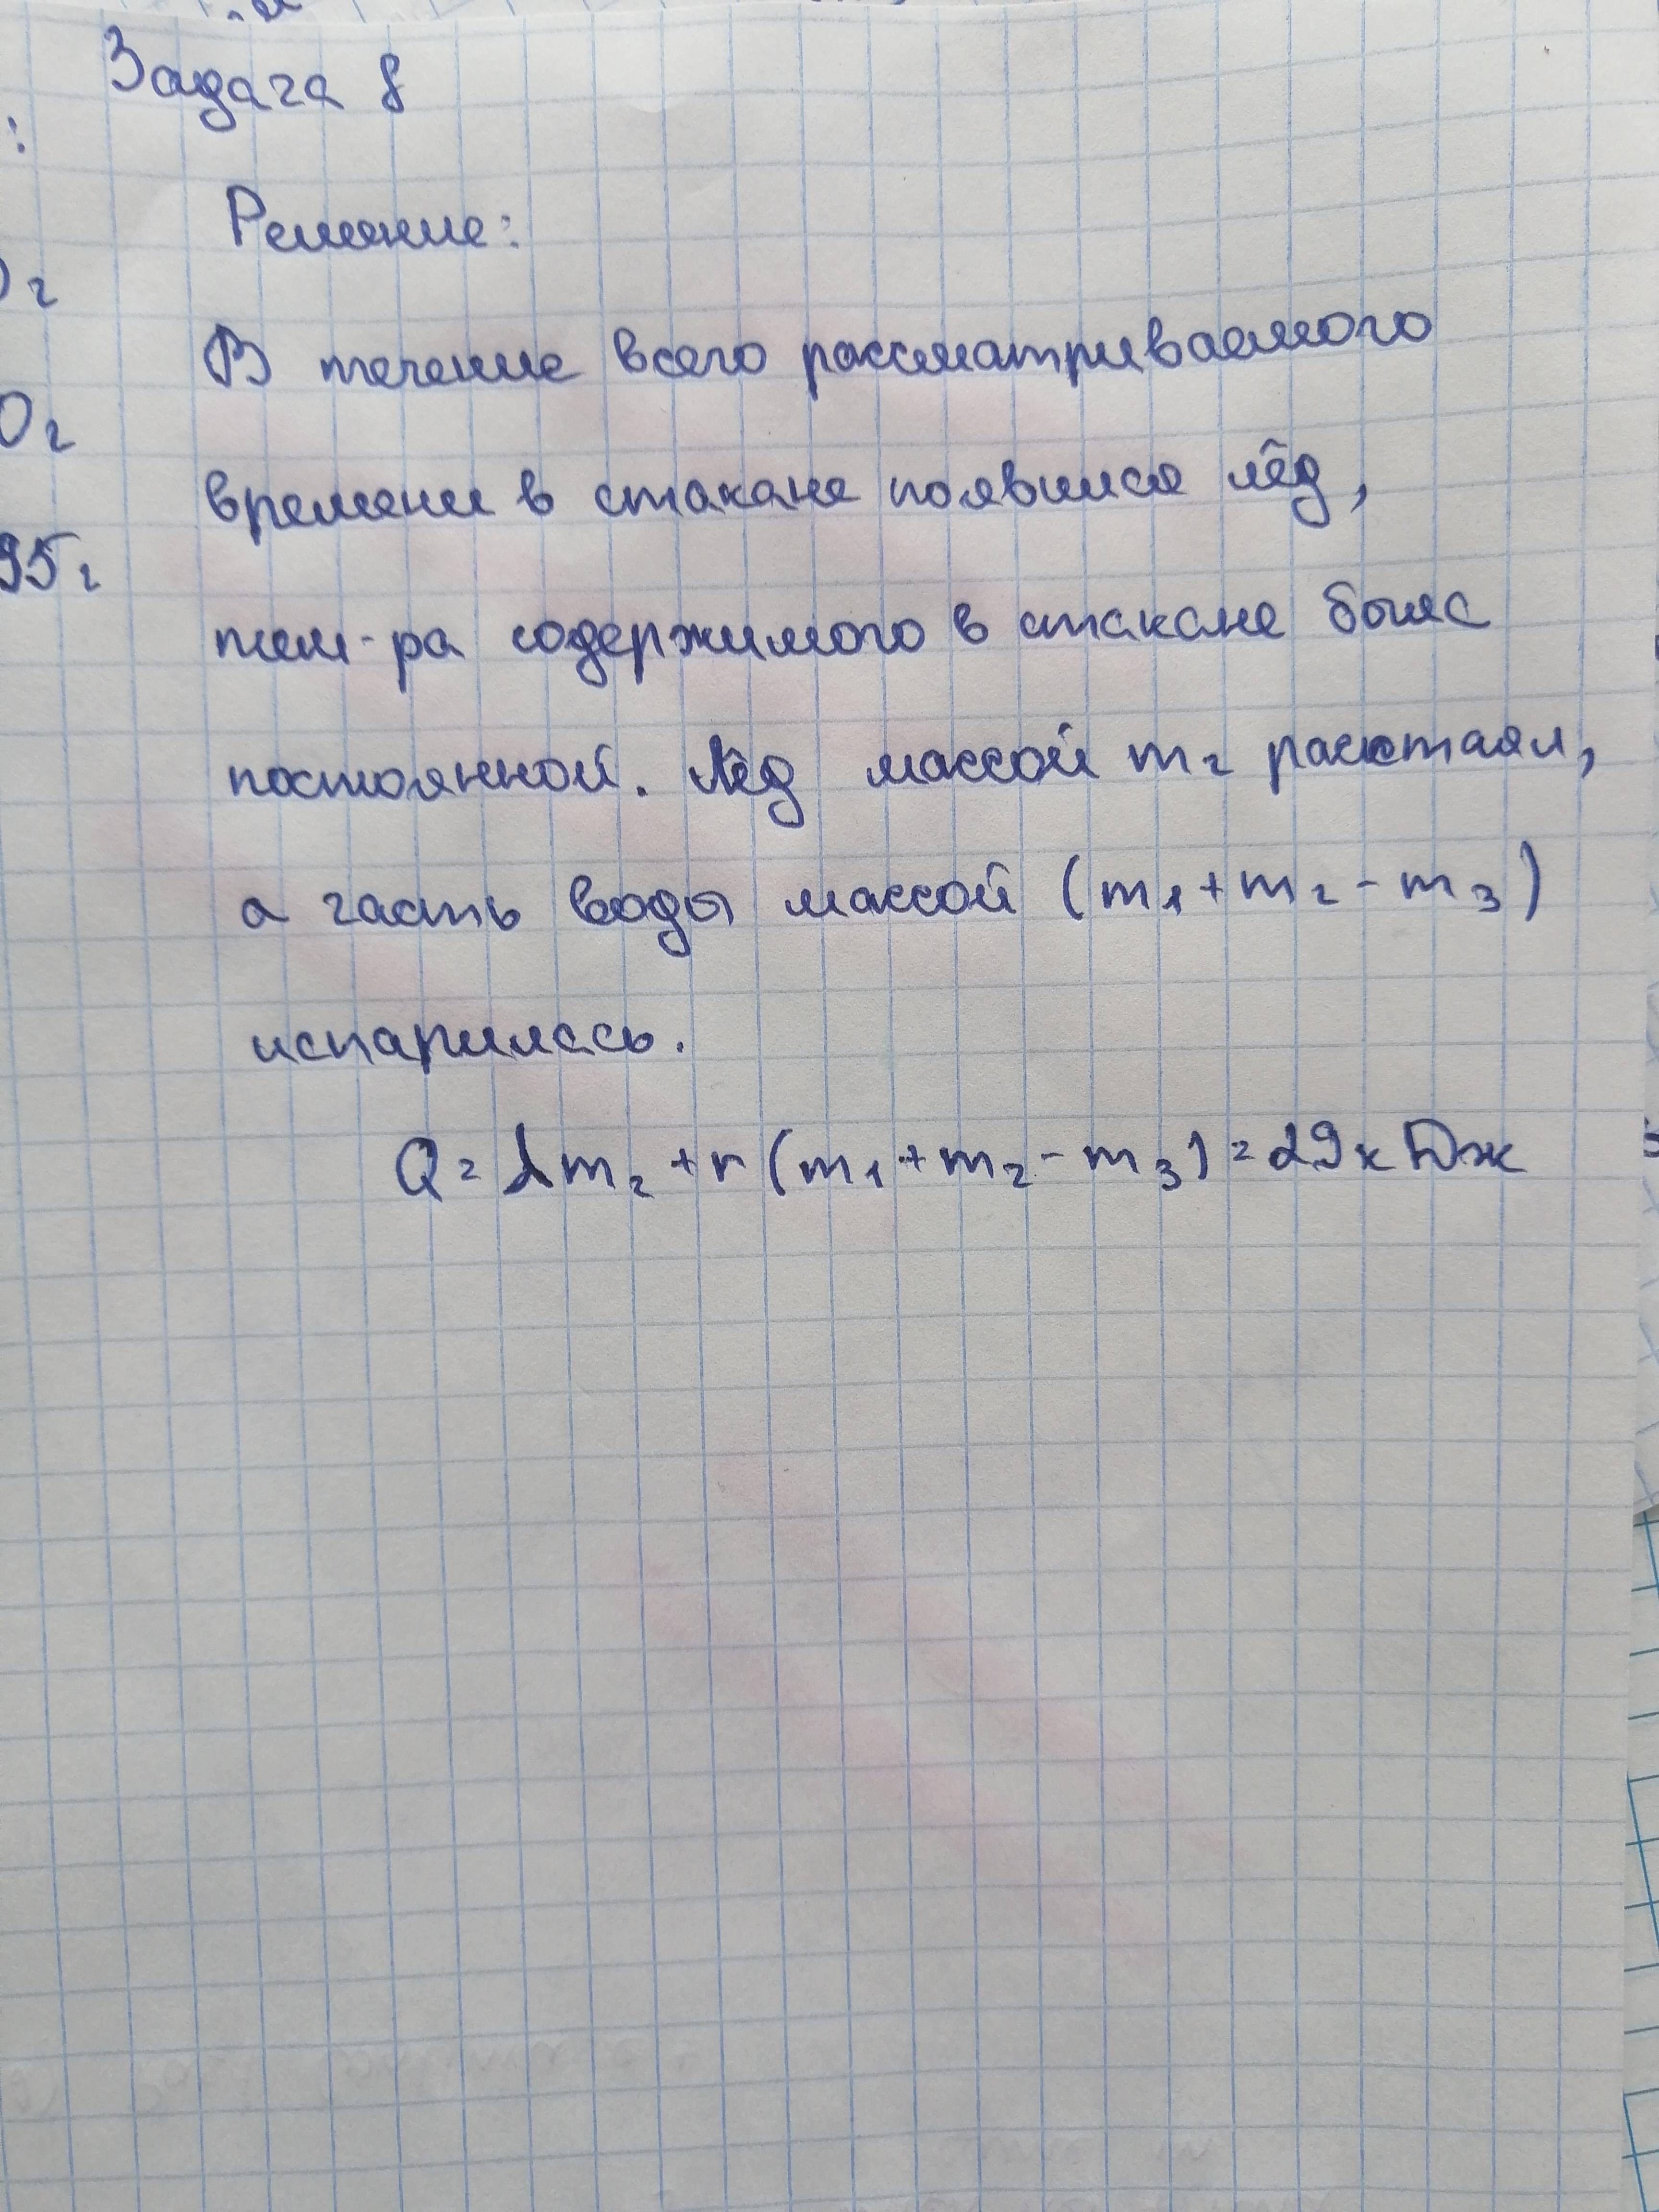 Задача 8
:
Решение:
0 г
В течение всего рассматриваемого
0 г
времени в стакане появился лёд,
95 г
тем-ра содержимого в стакане была
постоянной. Лёд массой m₂ расстаял,
а часть воды массой (m₁+m₂-m₃)
испарилась.
Q = λm₂ + r (m₁+m₂-m₃) = 29 кДж